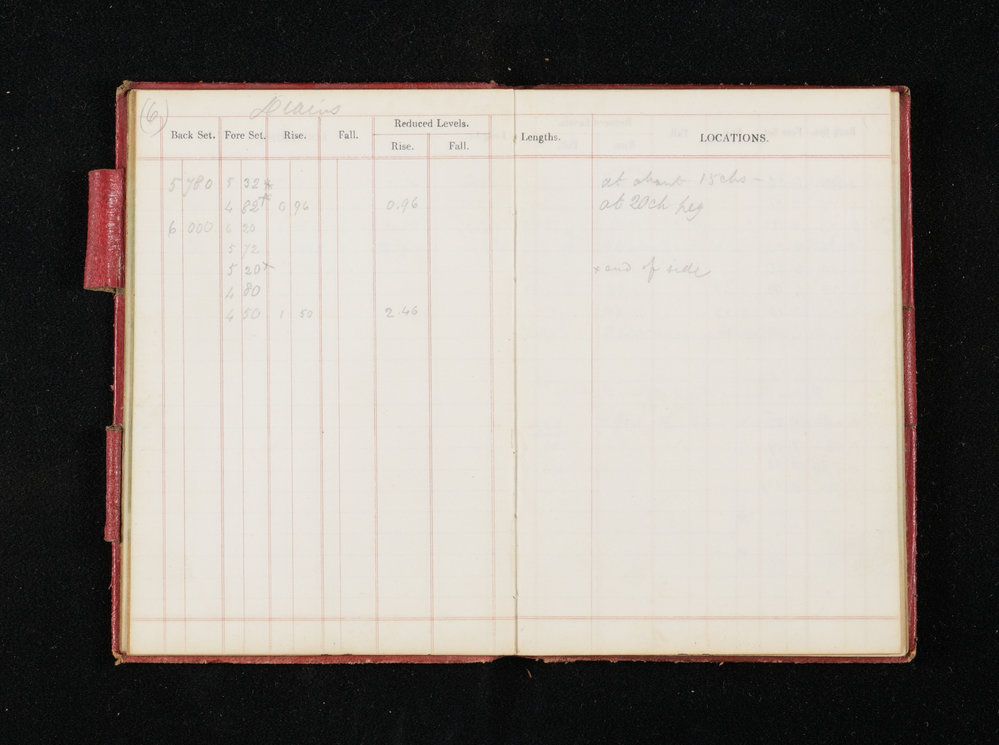 (6) Drains
Reduced Levels.
Back Set. Fore Set. Rise. Fall. Rise. Fall. Lengths. LOCATIONS.
5 780 5 32 x at about 15chs –
4 82 x 0 96 0.96 at 20ch peg
6 000 6 20
5 72
5 20 x x end of side
4 80
4 50 1 50 2.46